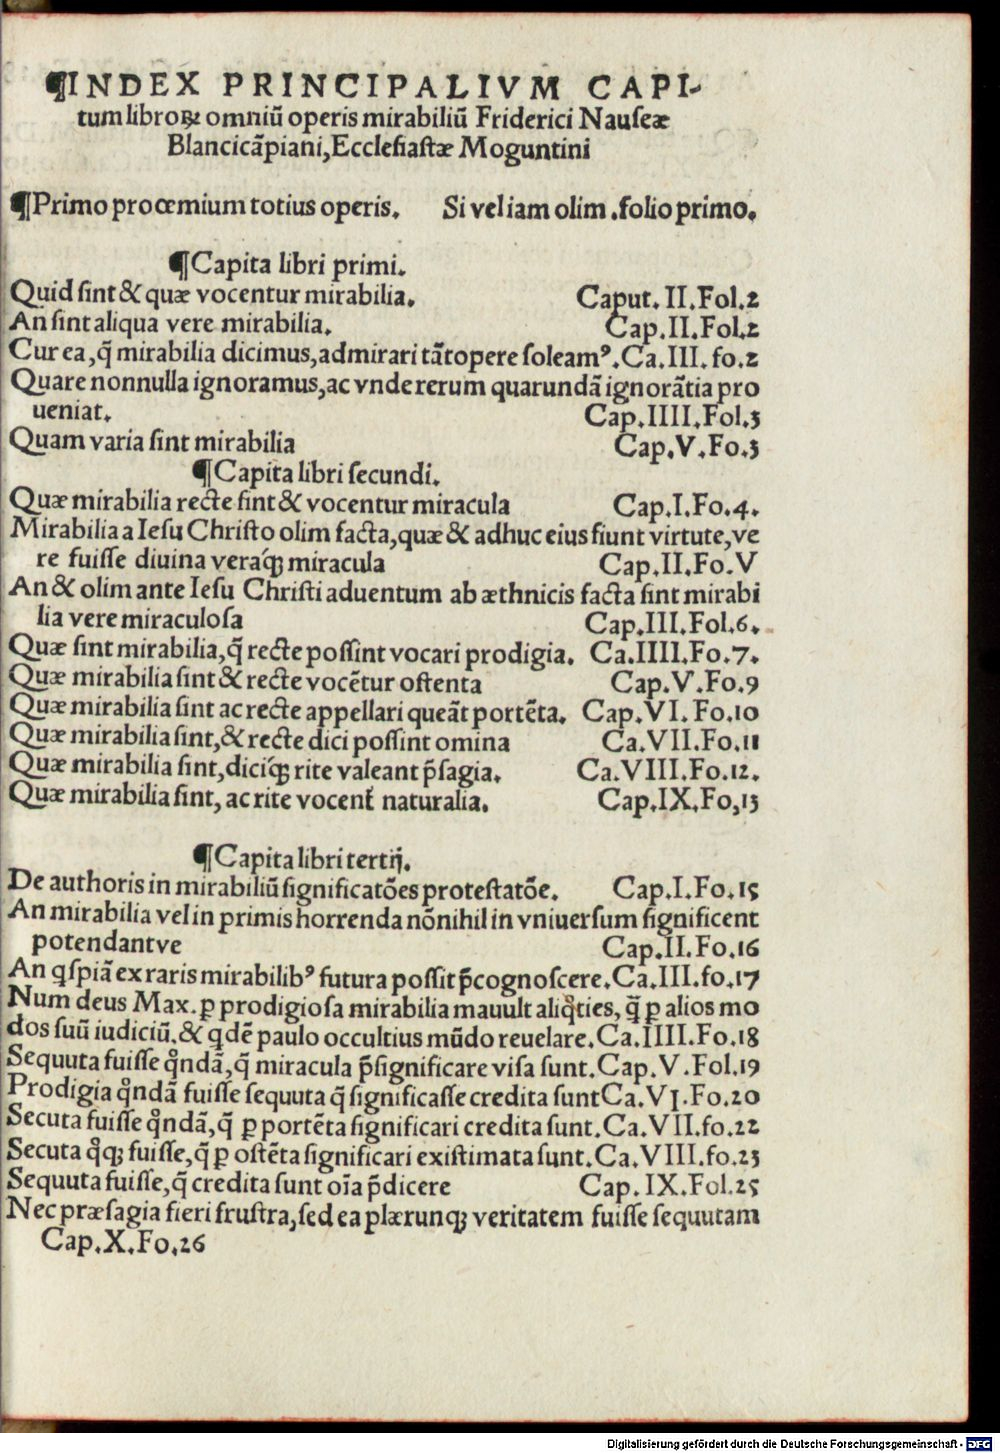 ¶INDEX PRINCIPALIVM CAPI-
tum libroꝝ omniũ operis mirabiliũ Friderici Nauſeæ
Blancicãpiani, Eccleſiaſtæ Moguntini
¶Primo proœmium totius operis. Si vel iam olim .folio primo.
¶Capita libri primi.
Quid ſint & quæ vocentur mirabilia. Caput. II. Fol.2
An ſint aliqua vere mirabilia. Cap.II.Fol.2
Cur ea, q̃ mirabilia dicimus, admirari tãtopere ſoleamꝰ. Ca.III. fo.2
Quare nonnulla ignoramus, ac vnde rerum quarundã ignorãtia pro
ueniat. Cap.IIII.Fol.3
Quam varia ſint mirabilia Cap.V.Fo.3
¶Capita libri ſecundi.
Quæ mirabilia recte ſint & vocentur miracula Cap.I.Fo.4.
Mirabilia a Ieſu Chriſto olim facta, quæ & adhuc eius fiunt virtute, ve
re fuiſſe diuina veraq́ꝫ miracula Cap.II.Fo.V
An & olim ante Ieſu Chriſti aduentum ab æthnicis facta ſint mirabi
lia vere miraculoſa Cap.III.Fol.6.
Quæ ſint mirabilia, q̃ recte poſſint vocari prodigia. Ca.IIII.Fo.7.
Quæ mirabilia ſint & recte vocẽtur oſtenta Cap.V.Fo.9
Quæ mirabilia ſint ac recte appellari queãt portẽta. Cap.VI. Fo.10
Quæ mirabilia ſint, & recte dici poſſint omina Ca.VII.Fo.11
Quæ mirabilia ſint, diciq́ꝫ rite valeant p̃ſagia. Ca.VIII.Fo.12.
Quæ mirabilia ſint, ac rite vocent᷑ naturalia. Cap.IX.Fo,13
¶Capita libri tertij.
De authoris in mirabiliũ ſignificatões proteſtatõe. Cap.I.Fo.15
An mirabilia vel in primis horrenda nõnihil in vniuerſum ſignificent
potendantve Cap.II.Fo.16
An qſpiã ex raris mirabilibꝰ futura poſſit p̃cognoſcere. Ca.III.fo.17
Num deus Max. ꝑ prodigioſa mirabilia mauult aliqͦties, q̃ ꝑ alios mo
dos ſuũ iudiciũ. & qdẽ paulo occultius mũdo reuelare. Ca.IIII.Fo.18
Sequuta fuiſſe qͦndã, q̃ miracula p̃ſignificare viſa ſunt. Cap.V.Fol.19
Prodigia qͦndã fuiſſe ſequuta q̃ ſignificaſſe credita ſunt Ca.VI.Fo.20
Secuta fuiſſe qͦndã, q̃ ꝑ portẽta ſignificari credita ſunt. Ca.VII.fo.22
Secuta qͦqꝫ fuiſſe, q̃ ꝑ oſtẽta ſignificari exiſtimata ſunt. Ca.VIII.fo.23
Sequuta fuiſſe, q̃ credita ſunt oĩa p̃dicere Cap. IX.Fol.25
Nec præſagia fieri fruſtra, ſed ea plærunqꝫ veritatem fuiſſe ſequutam
Cap.X.Fo.26
Digitalisierung gefördert durch die Deutsche Forschungsgemeinschaft - DFG